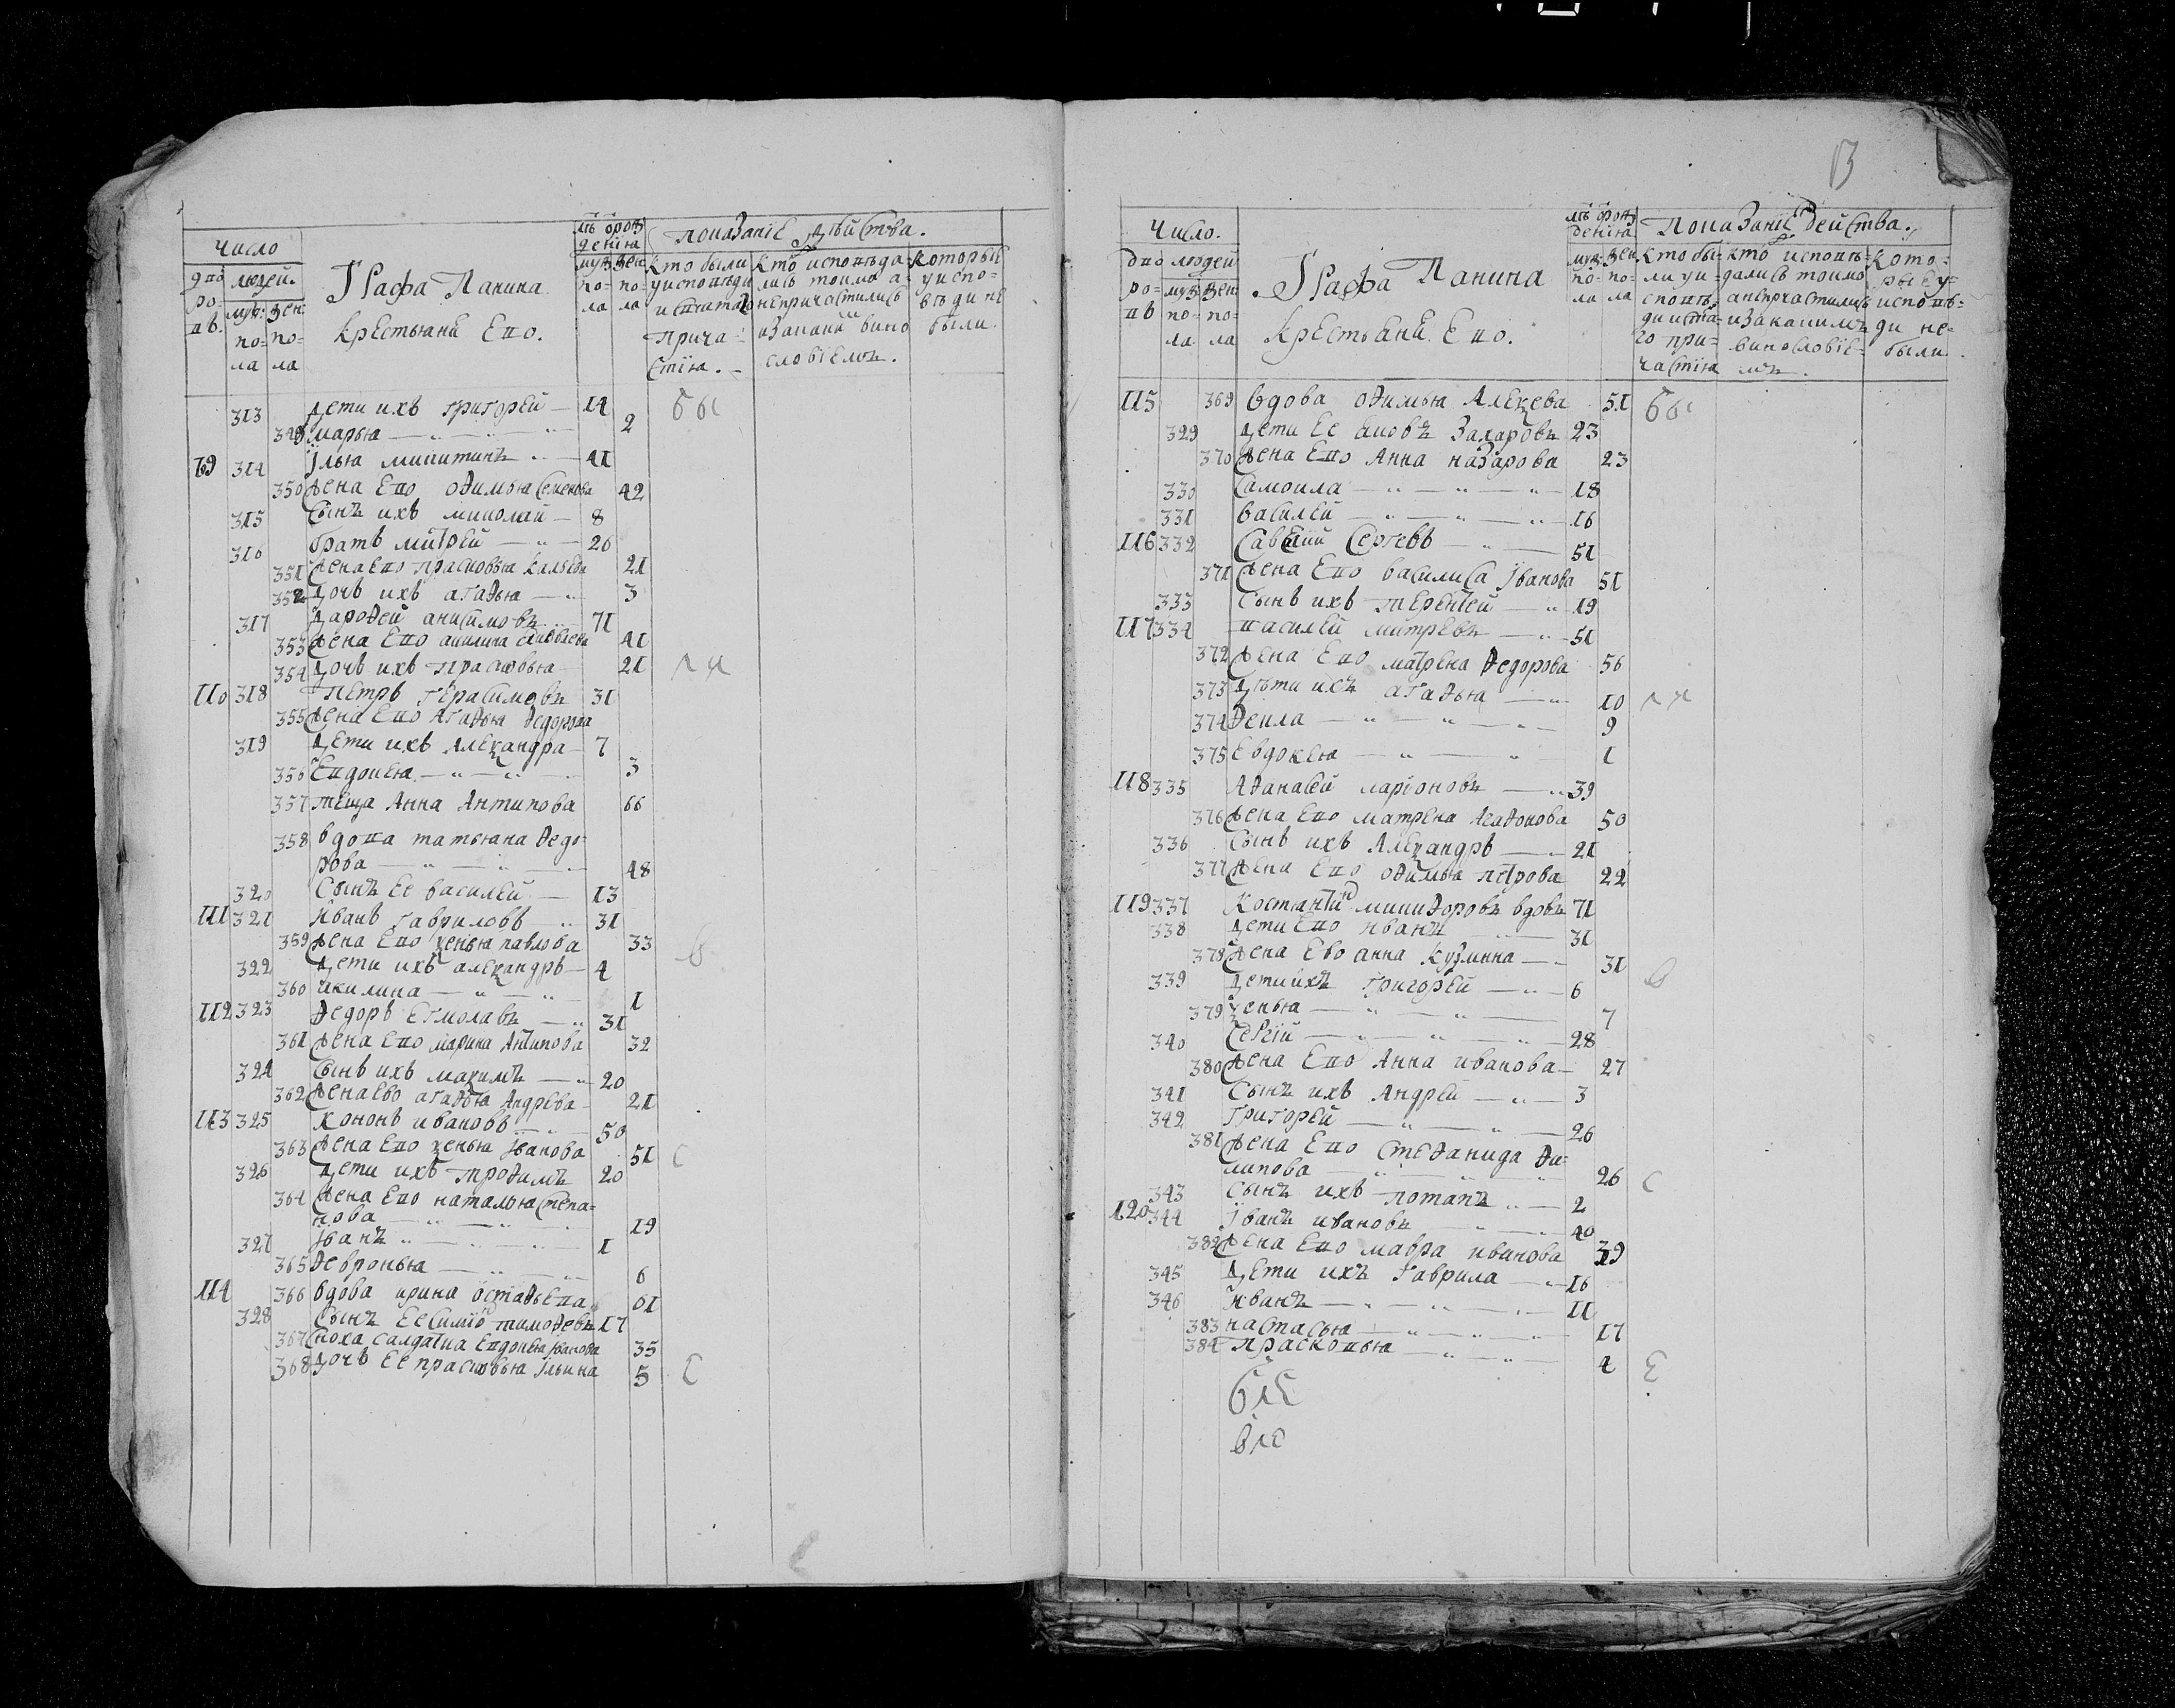 Число
дво
ро
въ.
людей.
муж: жен:
по= по=
ла ла
Графа Панина
крестьяне Ево.
лѣтъ ѿ рож
денїя
муж жен
по- по-
ла ла
показанїе дѣйства.
кто были
у исповѣди
и с̃тагѡ
прича=
стїя.
кто исповѣда
лись токмо а=
непричастились
и за какий вино
словїемъ.
которые
у испо=
вѣди не
были.
313 Дети ихъ григорей 14
348 марья 2
109 314 Iлья микитинъ 41
350 жена Ево офимья Семенова 42
315 Сынъ ихъ миколай 8
316 братъ митрей 26
351 жена ево прасковья 21
352 дочь ихъ агафья 3
317 Дарофей анисимовъ 71
353 жена Ево акилина 41
354 дочь ихъ прасковья 21
110 318 Петръ герасимовъ 31
355 жена Ево Агафья Федорова
319 Дети ихъ Алеѯандра 7
356 Евдокея 3
357 теща Анна Антипова 66
358 вдова татьяна Федо=
рова 48
320 Сынъ Ее василей 13
111 321 Иванъ гавриловъ 31
359 жена Ево ѯенья павлова 33
322 Дети ихъ алеѯандръ 4
360 Акилина 1
112 323 Федоръ Ермолавъ 31
361 жена Ево марина Антипова 32
324 Сынъ ихъ маѯимъ 20
362 жена ево агафья Андрева 21
113 325 Кононъ ивановъ 50
363 жена Ево ѯенья Iванова 51
326 Дети ихъ трофимъ 20
364 жена Ево наталья степа=
нова 19
327 Iванъ 1
365 Февронья 6
114 366 вдова ирина Остафьева 61
328 Сынъ Ее тимофевъ 17
367 сноха салдатка Евдокея Iванова 35
368 дочь Ее прасковья Iльина 5
Число.
дво
ро=
въ
людей
муж: жен:
по- по=
ла ла
Графа Панина
Крестьяне Ево.
лѣтъ ѿ рож
денїя
муж: жен
по- по-
ла ла
показанїе действа.
кто бы=
ли у и=
сповѣ=
ди и с̃та=
го при=
частїя
кто исповѣ=
дались токмо
а непричастились
и за какимъ
винословїе=
мъ.
кото=
рые у=
исповѣ=
ди не=
были.
115 369 вдова офимья Алеѯева 51
329 Дети Ее Захаровъ 23
370 жена Ево Анна назарова 23
330 Самоила 18
331 василей 16
116 332 Савелий Сергевъ 51
371 жена Ево василиса Iванова 51
333 Сынъ ихъ терентей 19
117 334 василей митревъ 51
372 жена Ево матрена Федорова 56
373 Дѣти ихъ агафья 10
374 Фекла 9
375 Евдокея 1
118 335 Афанасей ларїоновъ 39
376 жена Ево матрена Агафонова 50
336 Сынъ ихъ Алеѯандръ 21
377 жена Ево офимья петрова 22
119 337 Костянтинъ микифоровъ вдовъ 71
338 дети Ево Иванъ 31
378 жена Ево анна кузминна 31
339 Дети ихъ григорей 6
379 ѯенья 7
340 Сергїй 28
380 жена Ево Анна иванова 27
341 Сынъ ихъ Андрей 3
342 григорей 26
381 жена Ево Стефанида Фи=
липова 26
343 Сынъ ихъ потапъ 2
120 344 Iванъ ивановъ 40
382 жена Ево мавра иванова 39
345 Дети ихъ Гаврила 16
346 Иванъ 11
383 настасья 17
384 прасковья 4